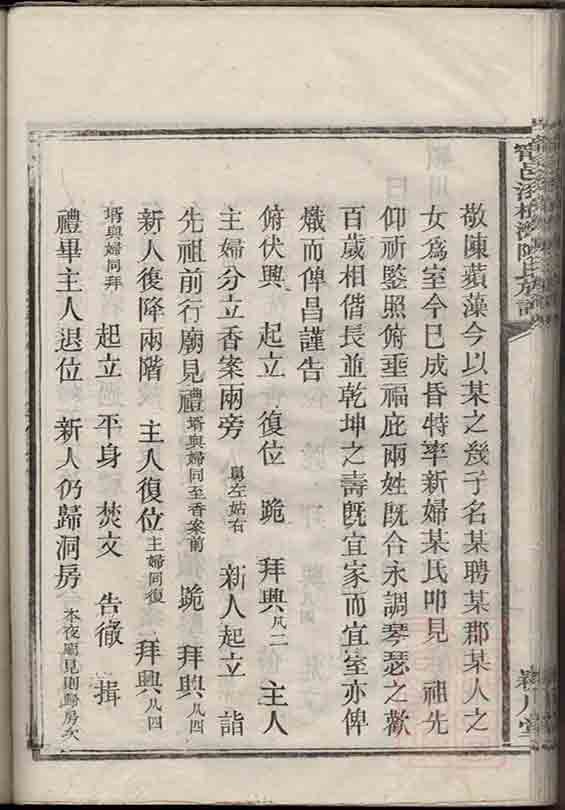 敬陳蘋藻今以某之幾子名某聘某郡某人之
女爲室今已成昏特率新婦某氏叩見　祖先
仰祈鑒照俯垂福庇兩姓既合永調琴瑟之歡
百歲相偕長並乾坤之壽既宜家而宜室亦俾
熾而俾昌謹告
俯伏興　起立　復位　跪　拜興凡二　主人
主婦分立香案兩旁　舅左姑右　新人起立　詣
先祖前行廟見禮壻與婦同至香案前　跪　拜興凡四
新人復降兩階　主人復位主婦同復　拜興凡四
壻與婦同拜　起立　平身　焚文　告徹　揖
禮畢主人退位　新人仍歸洞房　本夜廟見則歸房次